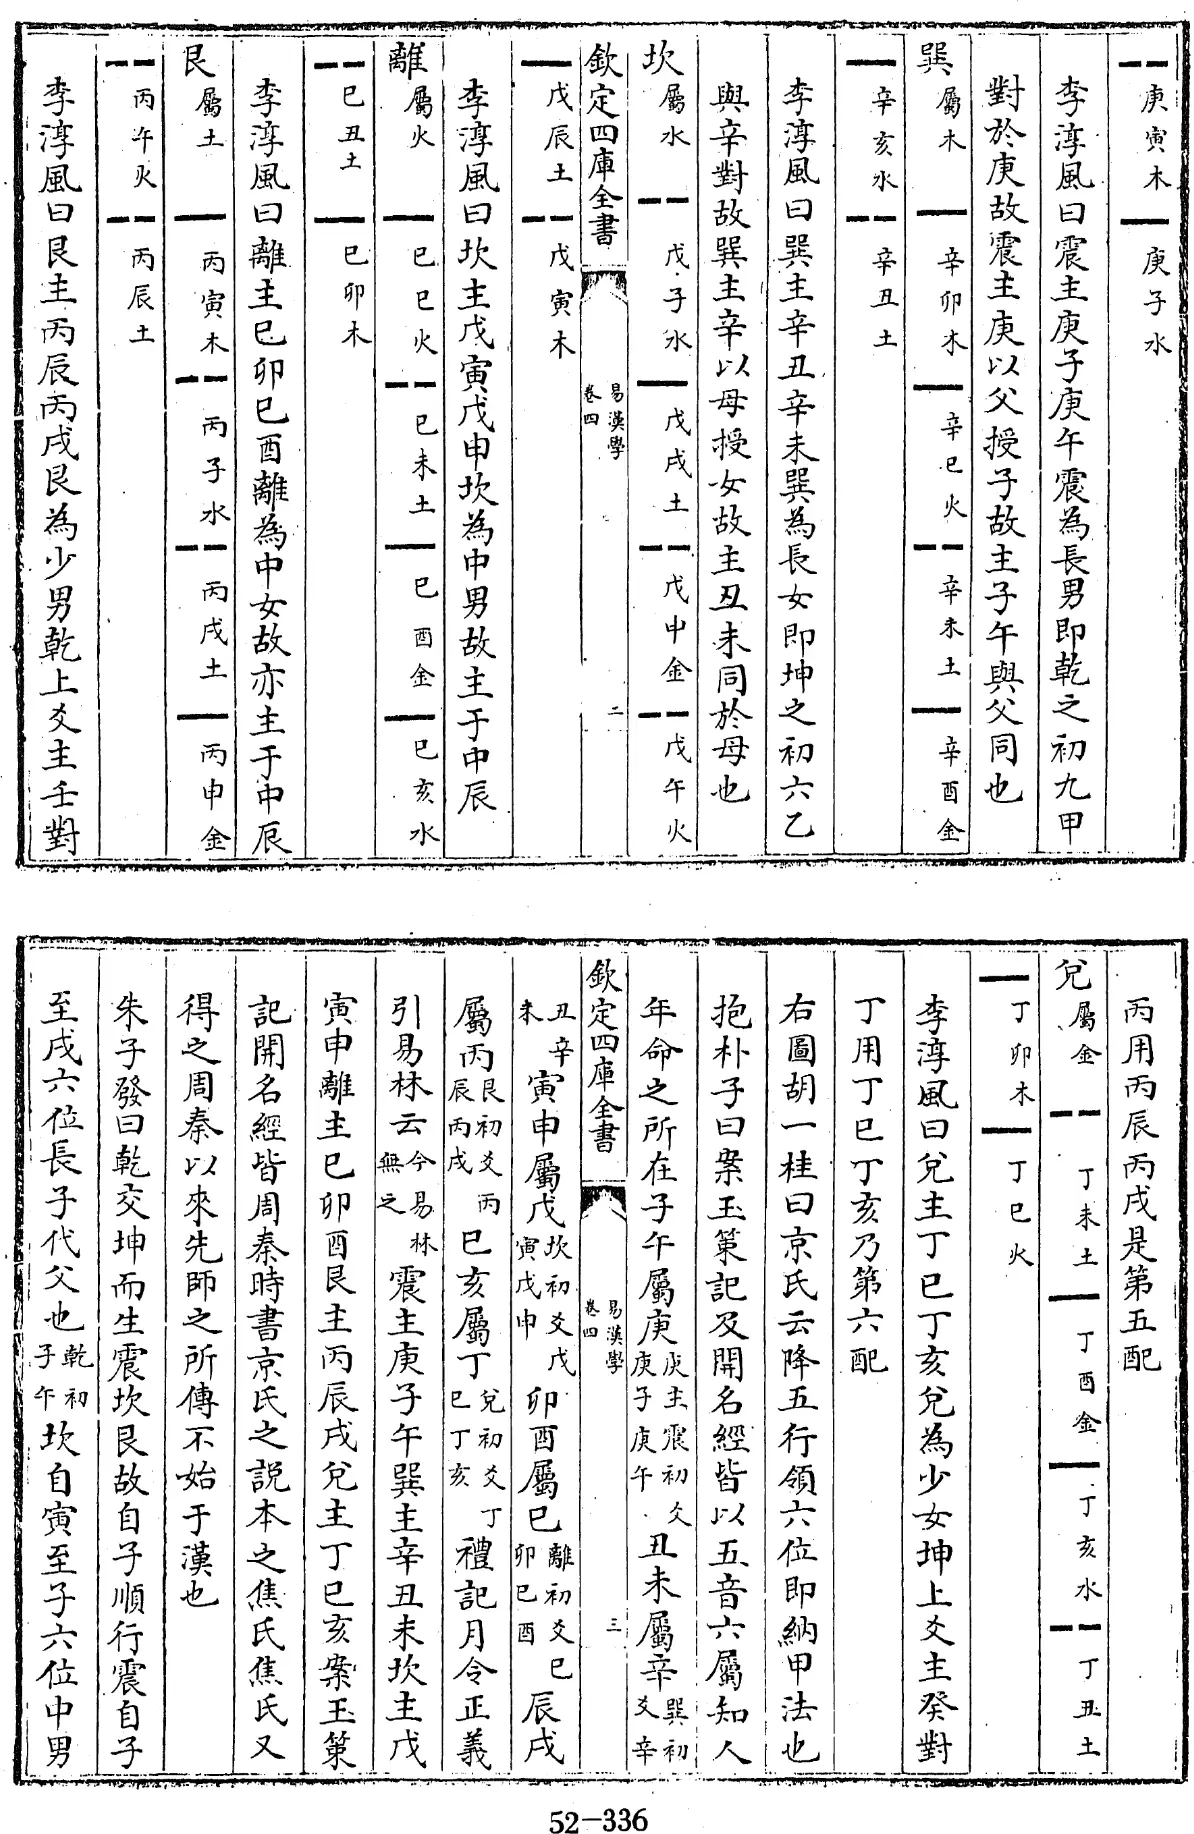 庚寅木 庚子水
李淳風曰震主庚子庚午震為長男即乾之初九甲
對於庚故震主庚以父授子故主子午與父同也
巽 屬木 辛卯木 辛巳火 辛未土 辛酉金
辛亥水 辛丑土
李淳風曰巽主辛丑辛未巽為長女即坤之初六乙
與辛對故巽主辛以母授女故主丑未同於母也
坎 屬水 戊子水 戊戌土 戊申金 戊午火
欽定四庫全書 易漢學 卷四 二
戊辰土 戊寅木
李淳風曰坎主戊寅戊申坎為中男故主于中辰
離 屬火 己巳火 己未土 己酉金 己亥水
己丑土 己卯木
李淳風曰離主己卯己酉離為中女故亦主于中辰
艮 屬土 丙寅木 丙子水 丙戌土 丙申金
丙午火 丙辰土
李淳風曰艮主丙辰丙戌艮為少男乾上爻主壬對
丙用丙辰丙戌是第五配
兌 屬金 丁未土 丁酉金 丁亥水 丁丑土
丁卯木 丁巳火
李淳風曰兌主丁巳丁亥兌為少女坤上爻主癸對
丁用丁巳丁亥乃第六配
右圖胡一桂曰京氏云降五行領六位即納甲法也
抱朴子曰案玉策記及開名經皆以五音六屬知人
年命之所在子午屬庚庚主震初爻庚子庚午丑未屬辛巽初爻辛
欽定四庫全書 易漢學 卷四 三
丑辛未寅申屬戊坎初爻戊寅戊申卯酉屬己離初爻己卯己酉辰戌
屬丙艮初爻丙辰丙戌巳亥屬丁兌初爻丁巳丁亥禮記月令正義
引易林云今易林無之震主庚子午巽主辛丑未坎主戊
寅申離主己卯酉艮主丙辰戌兌主丁巳亥案玉策
記開名經皆周秦時書京氏之說本之焦氏焦氏又
得之周秦以來先師之所傳不始于漢也
朱子發曰乾交坤而生震坎艮故自子順行震自子
至戌六位長子代父也乾初子午坎自寅至子六位中男
52-336